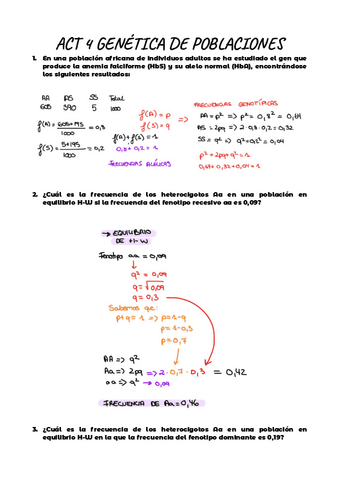 ACT 4 GENÉTICA DE POBLACIONES
1. En una población africana de individuos adultos se ha estudiado el gen que
produce la anemia falciforme (HbS) y su alelo normal (HbA), encontrándose
los siguientes resultados:
AA AS SS Total
605 390 5 1000
f(A) = 605+195 / 1000 = 0,8
f(S) = 5+195 / 1000 = 0,2
f(A) = p
f(S) = q
f(A) + f(S) = 1
0,8 + 0,2 = 1
FRECUENCIAS ALÉLICAS
FRECUENCIAS GENOTÍPICAS
AA = p² => p² = 0,8² = 0,64
AS = 2pq => 2·0,8·0,2 = 0,32
SS = q² => q² = 0,2² = 0,04
p² + 2pq + q² = 1
0,64 + 0,32 + 0,04 = 1
2. ¿Cuál es la frecuencia de los heterocigotos Aa en una población en
equilibrio H-W si la frecuencia del fenotipo recesivo aa es 0,09?
→ EQUILIBRIO
DE H-W
Fenotipo aa = 0,09
q² = 0,09
q = √0,09
q = 0,3
Sabemos que:
p+q = 1 => p = 1-q
p = 1-0,3
p = 0,7
AA => q²
Aa => 2pq => 2 · 0,7 · 0,3 = 0,42
aa => q² → 0,09
FRECUENCIA DE Aa = 0,46
3. ¿Cuál es la frecuencia de los heterocigotos Aa en una población en
equilibrio H-W en la que la frecuencia del fenotipo dominante es 0,19?